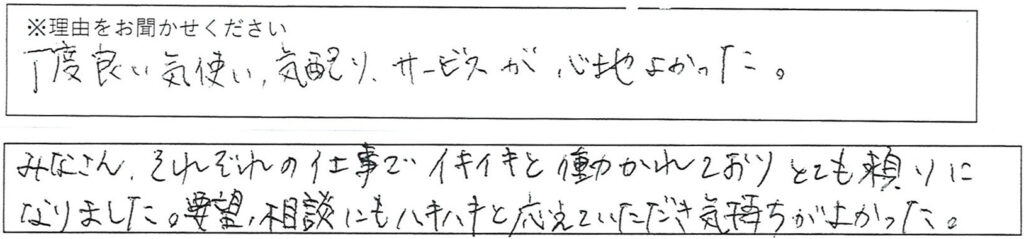 ※理由をお聞かせください
丁度良い気使い、気配り、サービスが心地よかった。
みなさん、それぞれの仕事でイキイキと働かれており とても頼りに
なりました。要望、相談にもハキハキと応えていただき気持ちがよかった。